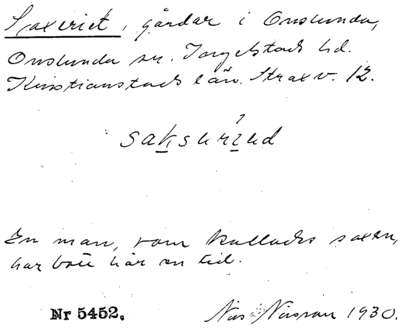 Saxeriet, gårdar i Onslunda,
Onslunda sn. Ingelstads hd.
Kristianstads län. Strax v. 12.
En man, som kallades saxen,
har bott här en tid.
Nr 5452. 1930.